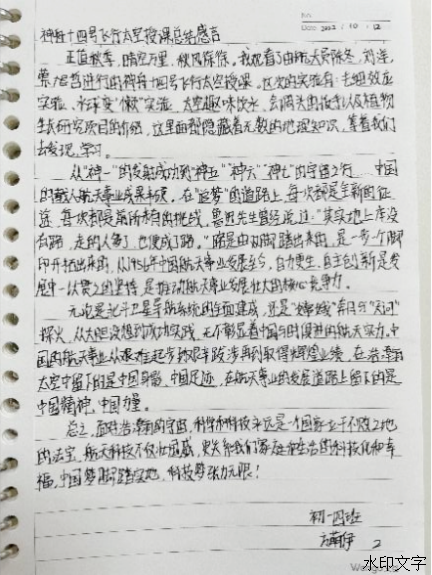 No.
Date 2022 / 10 / 12
神舟十四号飞行太空授课总结感言
正值秋季,晴空万里,秋风徐徐。我观看了由航天员陈冬,刘洋,
蔡旭哲进行的神舟十四号飞行太空授课。这次的实验有:毛细效应
实验、水球变"懒"实验、太空趣味饮水、会调头的扳手以及植物
生长研究项目的介绍,这里面都隐藏着无数的地理知识,等着我们
去发现,学习。
从"神一"的发射成功到"神五""神六""神七"的宇宙之行 中国
的载人航天事业成果丰硕。在"逐梦"的道路上,每次都是全新的征
途,每次都是前所未有的挑战,鲁迅先生曾经说过:"其实地上本没
有路,走的人多了,也便成了路。"路是由双脚踏出来的,是一步一个脚
印开拓出来的,从1956年中国航天事业发展至今,自力更生、自主创新是发
展中一以贯之的坚持,是推动航天事业发展壮大的核心竞争力。
无论是北斗卫星导航系统的全面建成,还是"嫦娥"奔月与"天问"
探火,从大胆设想到成功实践,无不彰显着中国与时俱进的航天实力。中
国的航天事业从艰难起步到艰辛跋涉再到取得辉煌业绩,在浩瀚
太空中留下的是中国身影、中国足迹,在航天事业的发展道路上留下的是
中国精神,中国力量。
总之,面对浩瀚的宇宙,科学和科技永远是一个国家立于不败之地
的法宝,航天科技不仅壮国威,更关系我们家庭和生活的科技化和幸
福,中国梦脚踏实地,科技梦张力无限!
初一四班
2
水印文字